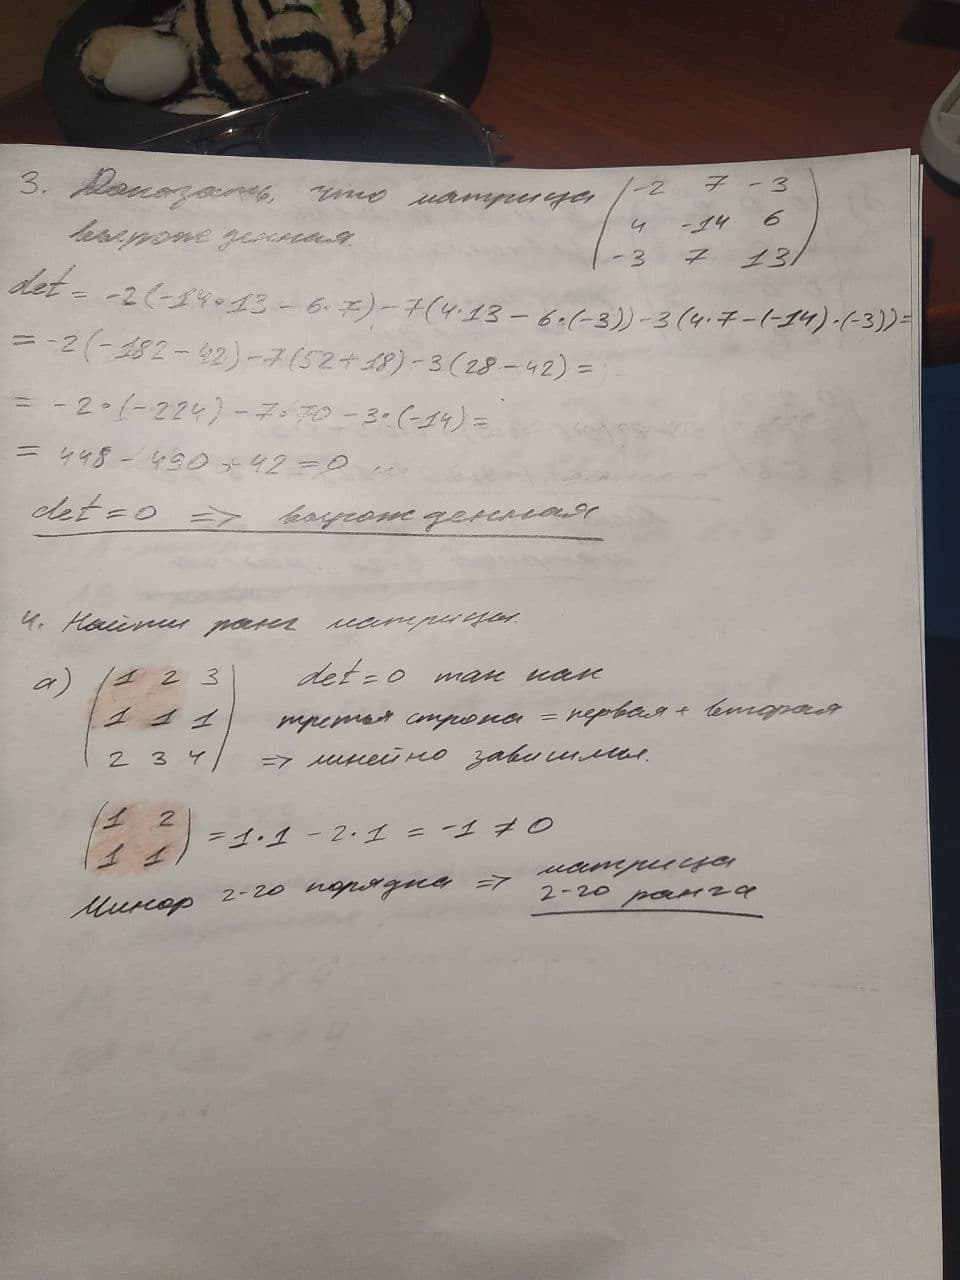 3. Доказать, что матрица (-2 7 -3
4 -14 6
-3 7 13)
вырожденная.
det = -2(-14·13 - 6·7) - 7(4·13 - 6·(-3)) - 3(4·7 - (-14)·(-3)) =
= -2(-182 - 42) - 7(52 + 18) - 3(28 - 42) =
= -2·(-224) - 7·70 - 3·(-14) =
= 448 - 490 + 42 = 0 ...
det = 0 => вырожденная
4. Найти ранг матрицы.
а) (1 2 3
1 1 1
2 3 4)
det = 0 так как
третья строка = первая + вторая
=> линейно зависимы.
(1 2
1 1) = 1·1 - 2·1 = -1 ≠ 0
Минор 2-го порядка => матрица
2-го ранга